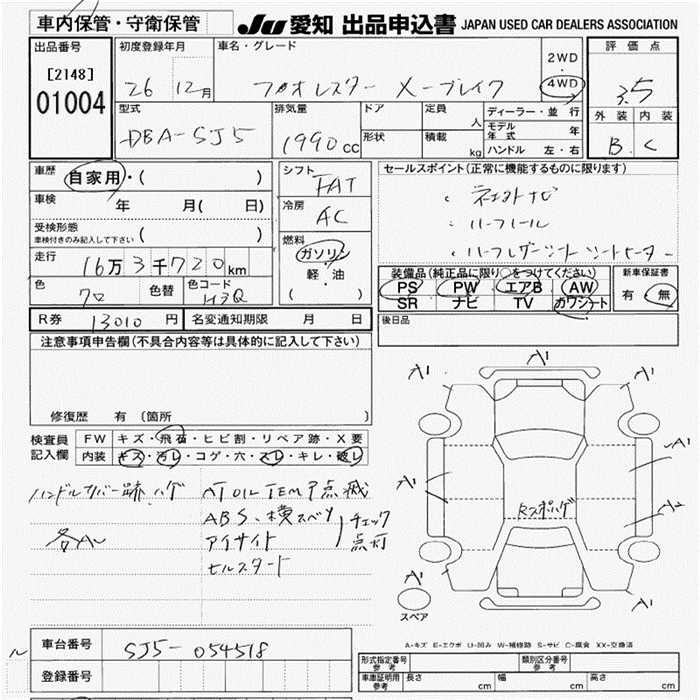 車内保管・守衛保管
JU 愛知 出品申込書 JAPAN USED CAR DEALERS ASSOCIATION
出品番号
[2148]
01004
初度登録年月
26 12月
車名・グレード
フォレスター X-ブレイク
2WD
4WD
評価点
3.5
外装 内装
B C
型式
DBA-SJ5
排気量
1990cc
ドア
形状
定員
人
積載
kg
ディーラー・並行
モデル年式 年
ハンドル 左・右
車歴
自家用・( )
車検
年 月( 日)
受検形態
車検付きのみ記入して下さい ( )
走行
16万3千720km
色
クロ
色替
色コード
H3Q
シフト
FAT
冷房
AC
燃料
ガソリン
軽・油
( )
セールスポイント(正常に機能するものに限ります)
・ ルーフレール
・ ハーフレザーシート シートヒーター
装備品(純正品に限り○をつけてください)
PS PW エアB AW
SR ナビ TV カワシート
新車保証書
有・無
後日品
R券 13010 円
名変通知期限 月 日
注意事項申告欄(不具合内容等は具体的に記入して下さい)
修復歴 有 (箇所 )
検査員記入欄
FW キズ・飛石・ヒビ割・リペア跡・X要
内装 キズ・汚レ・コゲ・穴・スレ・キレ・破レ
ハンドルカバー跡 ハゲ
各A
AT OIL TEMP点滅
ABS、横スベリ
アイサイト
ヒルスタート
チェック
点灯
A1
A1
A1
A1
A1
A2
A2
A1
A1
Rスポハゲ
スペア
A-キズ E-エクボ U-凹み W-補修跡 S-サビ C-腐食 XX-交換済
車台番号
SJ5-054518
登録番号
ル
形式指定番号 参考
類別区分番号 参考
車庫証明用 参考
長さ cm
幅 cm
高さ cm